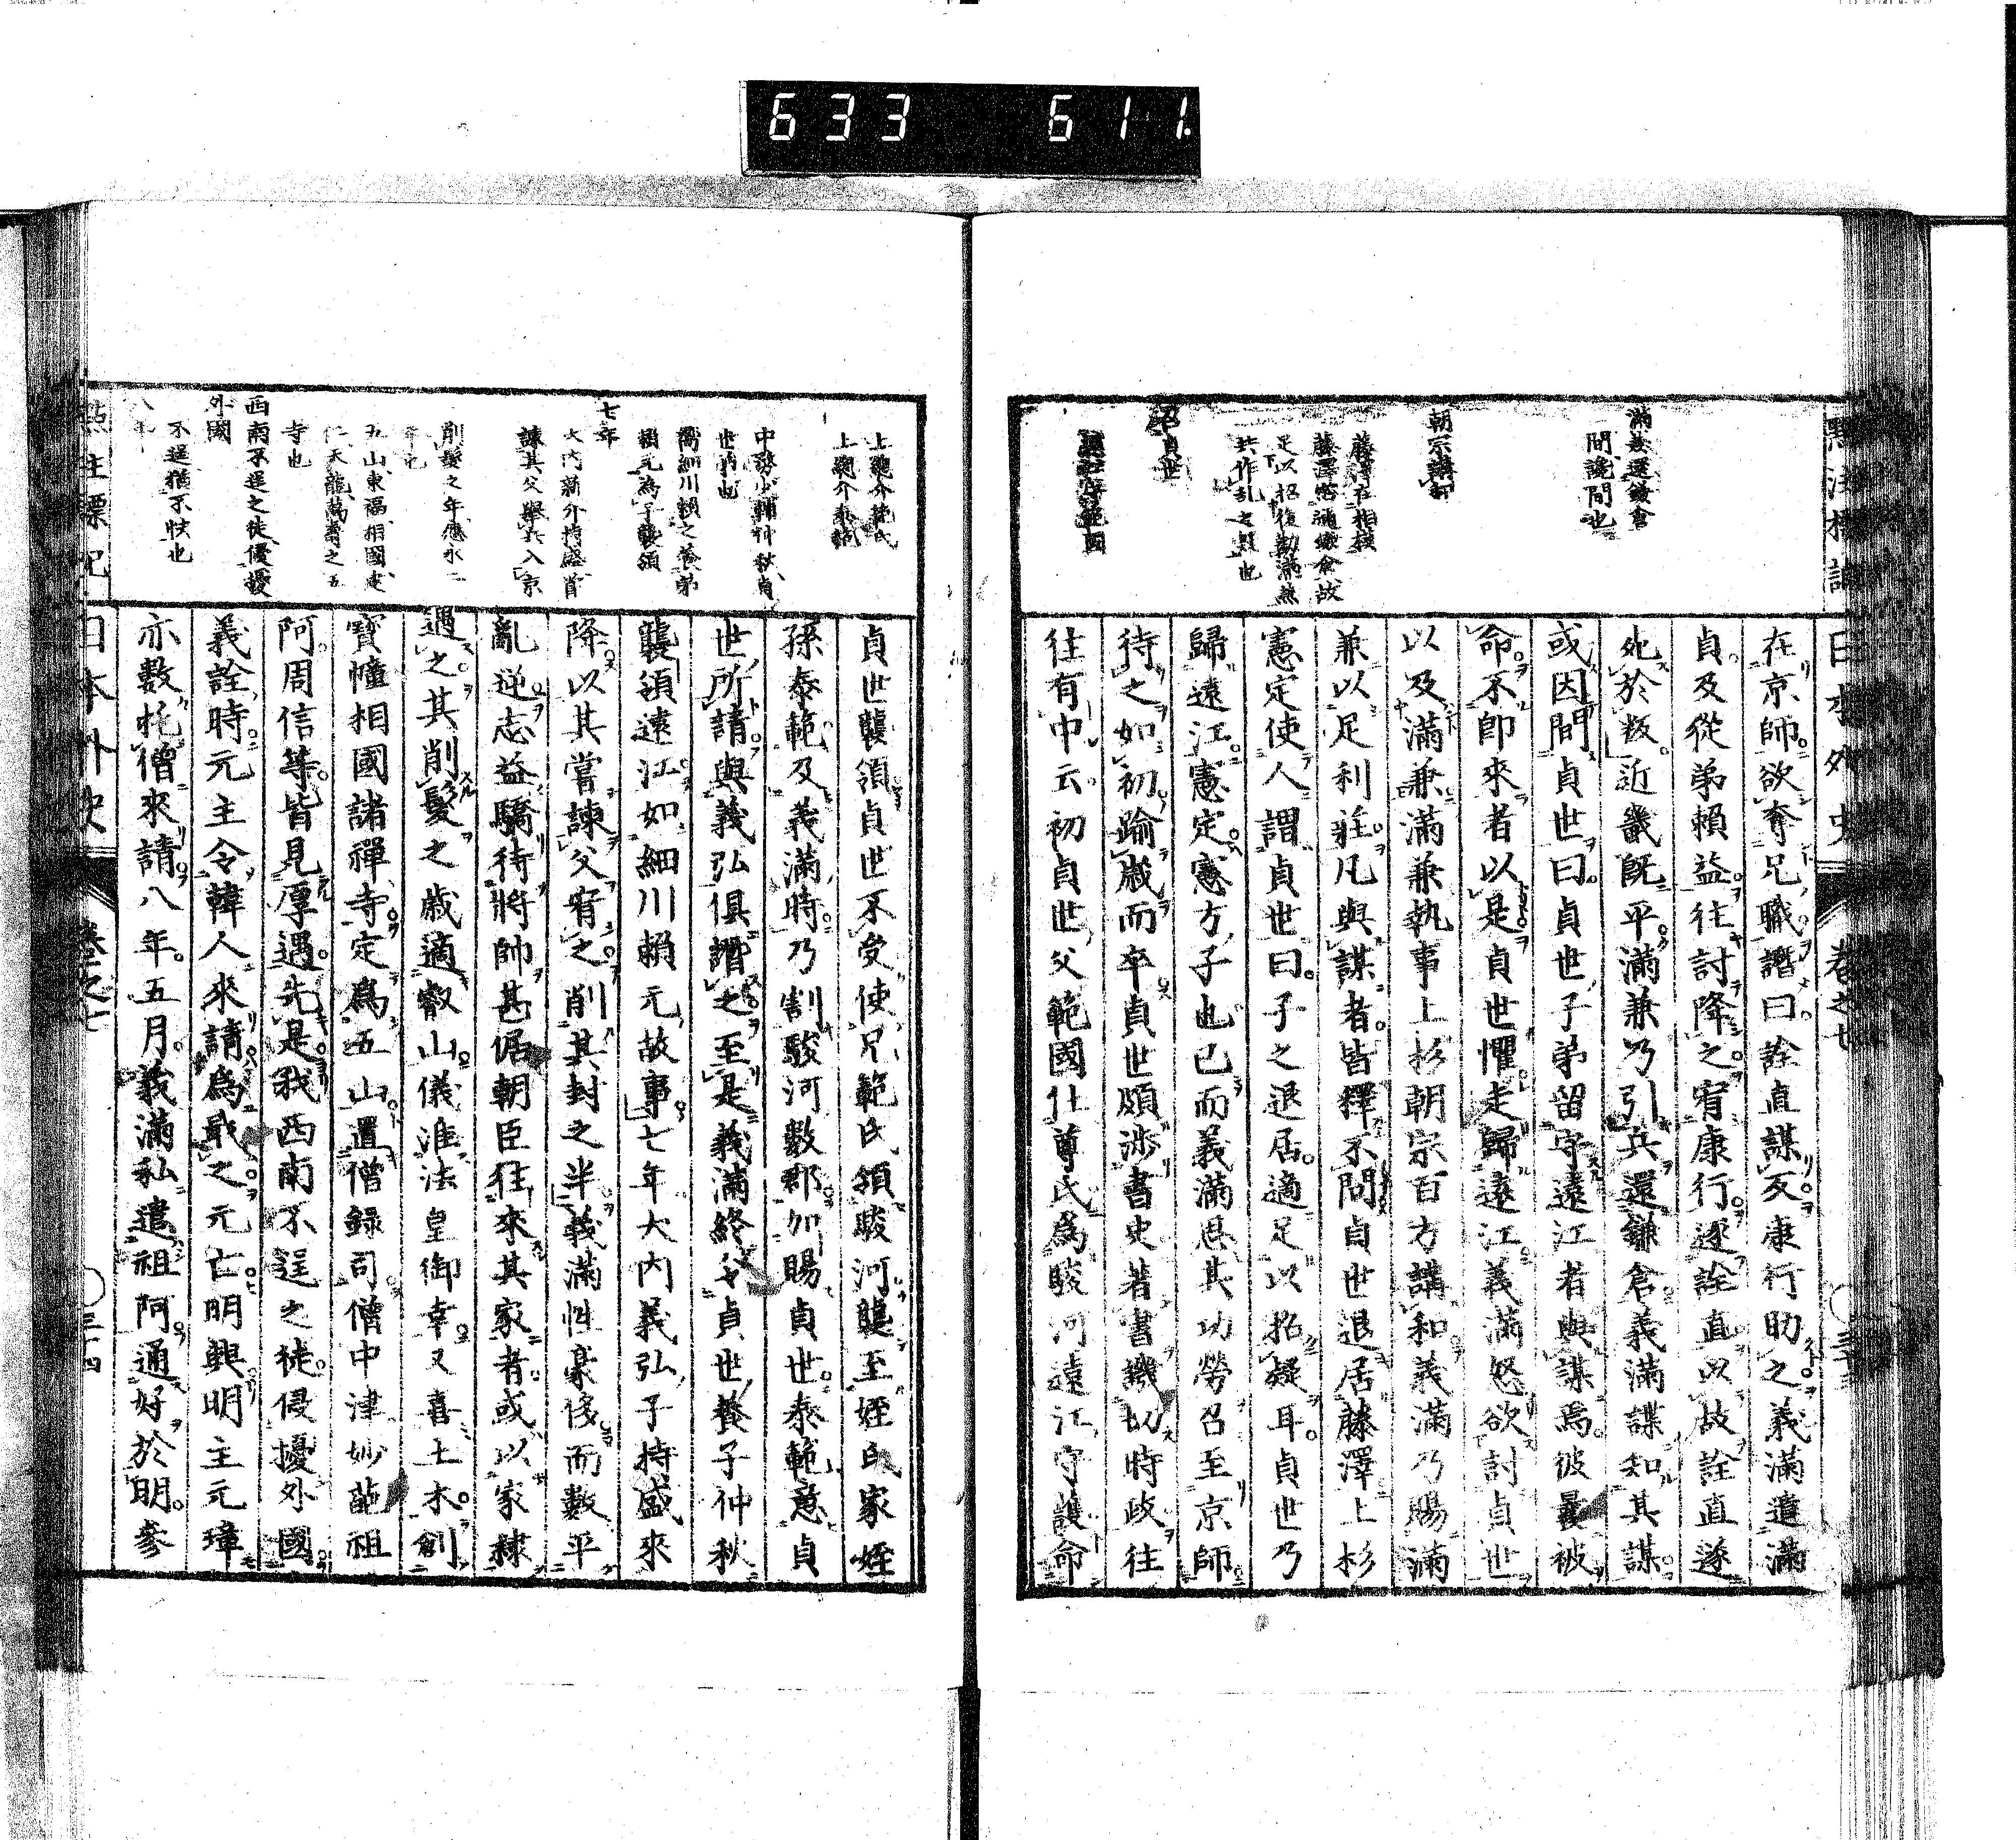 633 611.
滿兼還鎌倉
間讒間也
朝宗講和
藤澤在相模
藤澤密邇鎌倉故
足以招復勸滿兼
共作乱之疑也
召貞世
在京師欲奪兄職譖曰詮直謀反康行助之義滿遣滿
貞及從弟賴益往討降之宥康行逐詮直以故詮直遂
死於叛近畿既平滿兼乃引兵還鎌倉義滿諜知其謀
或因間貞世曰貞世子弟留守遠江者與謀焉彼曩被
命不卽來者以是貞世懼走歸遠江義滿怒欲討貞世
以及滿兼滿兼執事上杉朝宗百方講和義滿乃賜滿
兼以足利莊凡與謀者皆釋不問貞世退居藤澤上杉
憲定使人謂貞世曰子之退居適足以招疑耳貞世乃
歸遠江憲定憲方子也已而義滿思其功勞召至京師
待之如初踰歲而卒貞世頗涉書史著書譏切時政往
往有中云初貞世父範國仕尊氏爲駿河遠江守護命
上總介範氏
上總介泰範
中務少輔仲秋貞
世弟也
衞細川賴之養弟
賴元爲子襲領
七年
大內新介持盛嘗
諫其父擧兵入京
削髮之年應永二
年也
五山東福相國建
仁天龍萬壽之五
寺也
西南不逞之徒侵擾
外國
不逞猶不快也
八年
貞世襲領貞世不受使兄範氏領駿河襲至姪氏家姪
孫泰範及義滿時乃割駿河數郡加賜貞世泰範意貞
世所請與義弘俱譖之至是義滿終以貞世養子仲秋
襲領遠江如細川賴元故事七年大內義弘子持盛來
降以其嘗諫父宥之削其封之半義滿性豪侈而數平
亂逆志益驕待將帥甚倨朝臣往來其家者或以家隸
遇之其削髮之歲適叡山儀准法皇御幸又喜土木創
寶幢相國諸禪寺定爲五山置僧錄司僧中津妙葩祖
阿周信等皆見厚遇先是我西南不逞之徒侵擾外國
義詮時元主令韓人來請爲戢之元亡明興明主元璋
亦數托僧來請八年五月義滿私遣祖阿通好於明參